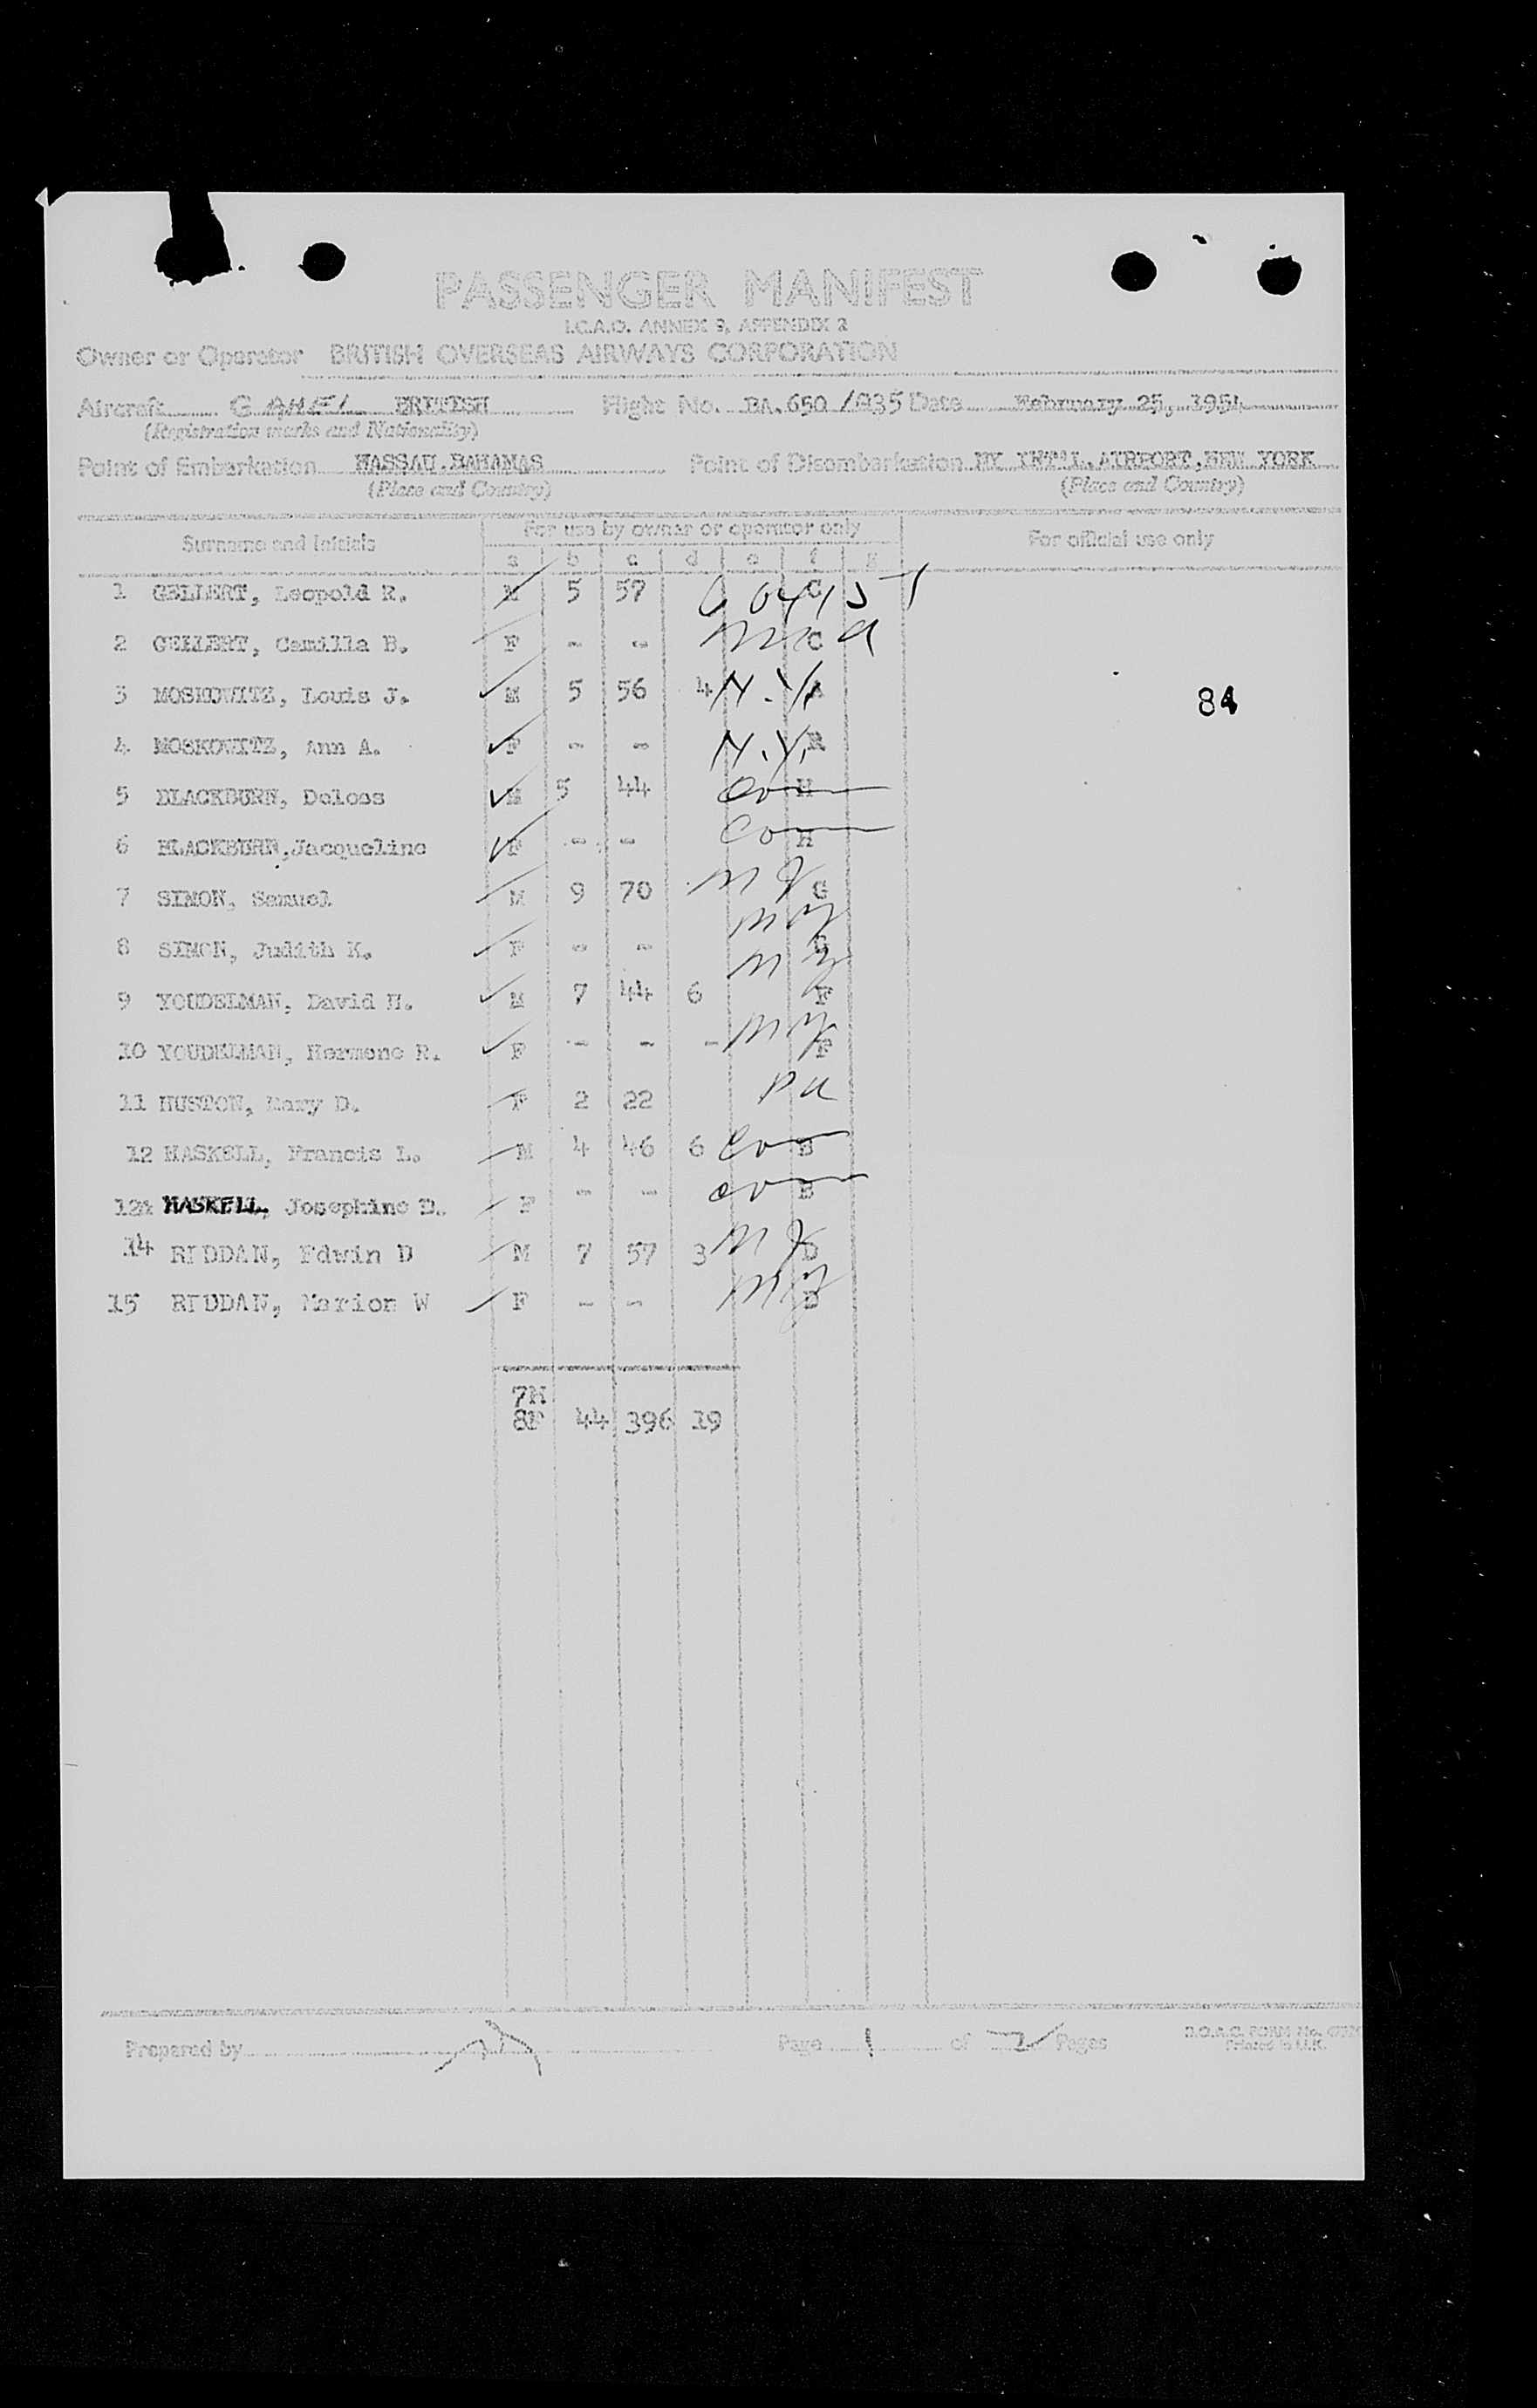 PASSENGER MANIFEST
I.C.A.O. ANNEX 9, APPENDIX 2
Owner or Operator BRITISH OVERSEAS AIRWAYS CORPORATION
Aircraft BRITISH Flight No. BA.650 /035 Date February 25, 1954
(Registration marks and Nationality)
Point of Embarkation NASSAU.BAHAMAS Point of Disembarkation NY INT'L.AIRPORT,NEW YORK
(Place and Country) (Place and Country)
Surname and Initials For use by owner or operator only For official use only
a b c d e f g
1 GELLERT, Leopold R. M 5 57 C
2 GELLERT, Camilla B. F - - C
3 MOSKOWITZ, Louis J. M 5 56 4 N.Y. A
84
4 MOSKOWITZ, Ann A. F - - N.Y.
5 BLACKBURN, Deloss M 5 44 Con H
6 BLACKBURN,Jacqueline F - - Con H
7 SIMON, Samuel M 9 70 NJ G
8 SIMON, Judith K. F - - NY G
9 YOUDELMAN, David H. M 7 44 6 NY F
10 YOUDELMAN, Hermene R. F - - - NY F
11 HUSTON, Mary D. F 2 22 Pa
12 HASKELL, Francis L. M 4 46 6 Con E
12A HASKELL, Josephine D. F - - Con E
14 RIDDAN, Edwin D M 7 57 3 NJ D
15 RIDDAN, Marion W F - - NJ D
7M
8F 44 396 19
Prepared by Page 1 of 2 Pages
B.O.A.C. FORM No.
Printed in U.K.